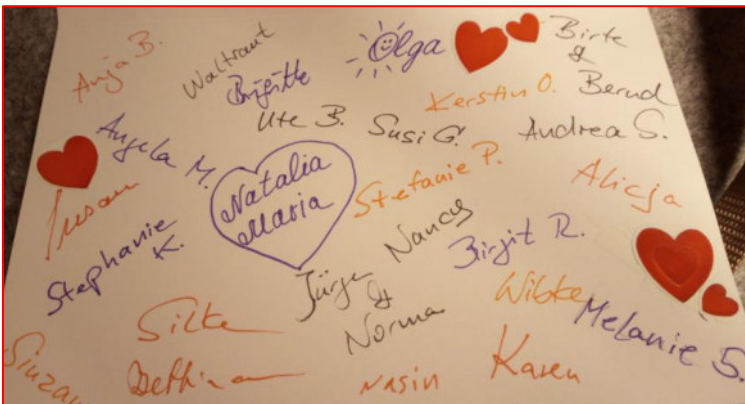 Anja B.
Waltraut
Brigitte
Olga
Birte
&
Bernd
Kerstin O.
Ute B.
Susi G.
Andrea S.
Angela M.
Natalia
Maria
Stefanie P.
Alicja
Susan
Stephanie
K.
Nancy
Birgit R.
Jürgen
&
Norma
Wibke
Melanie S.
Silke
Bettina
Nasin
Karen